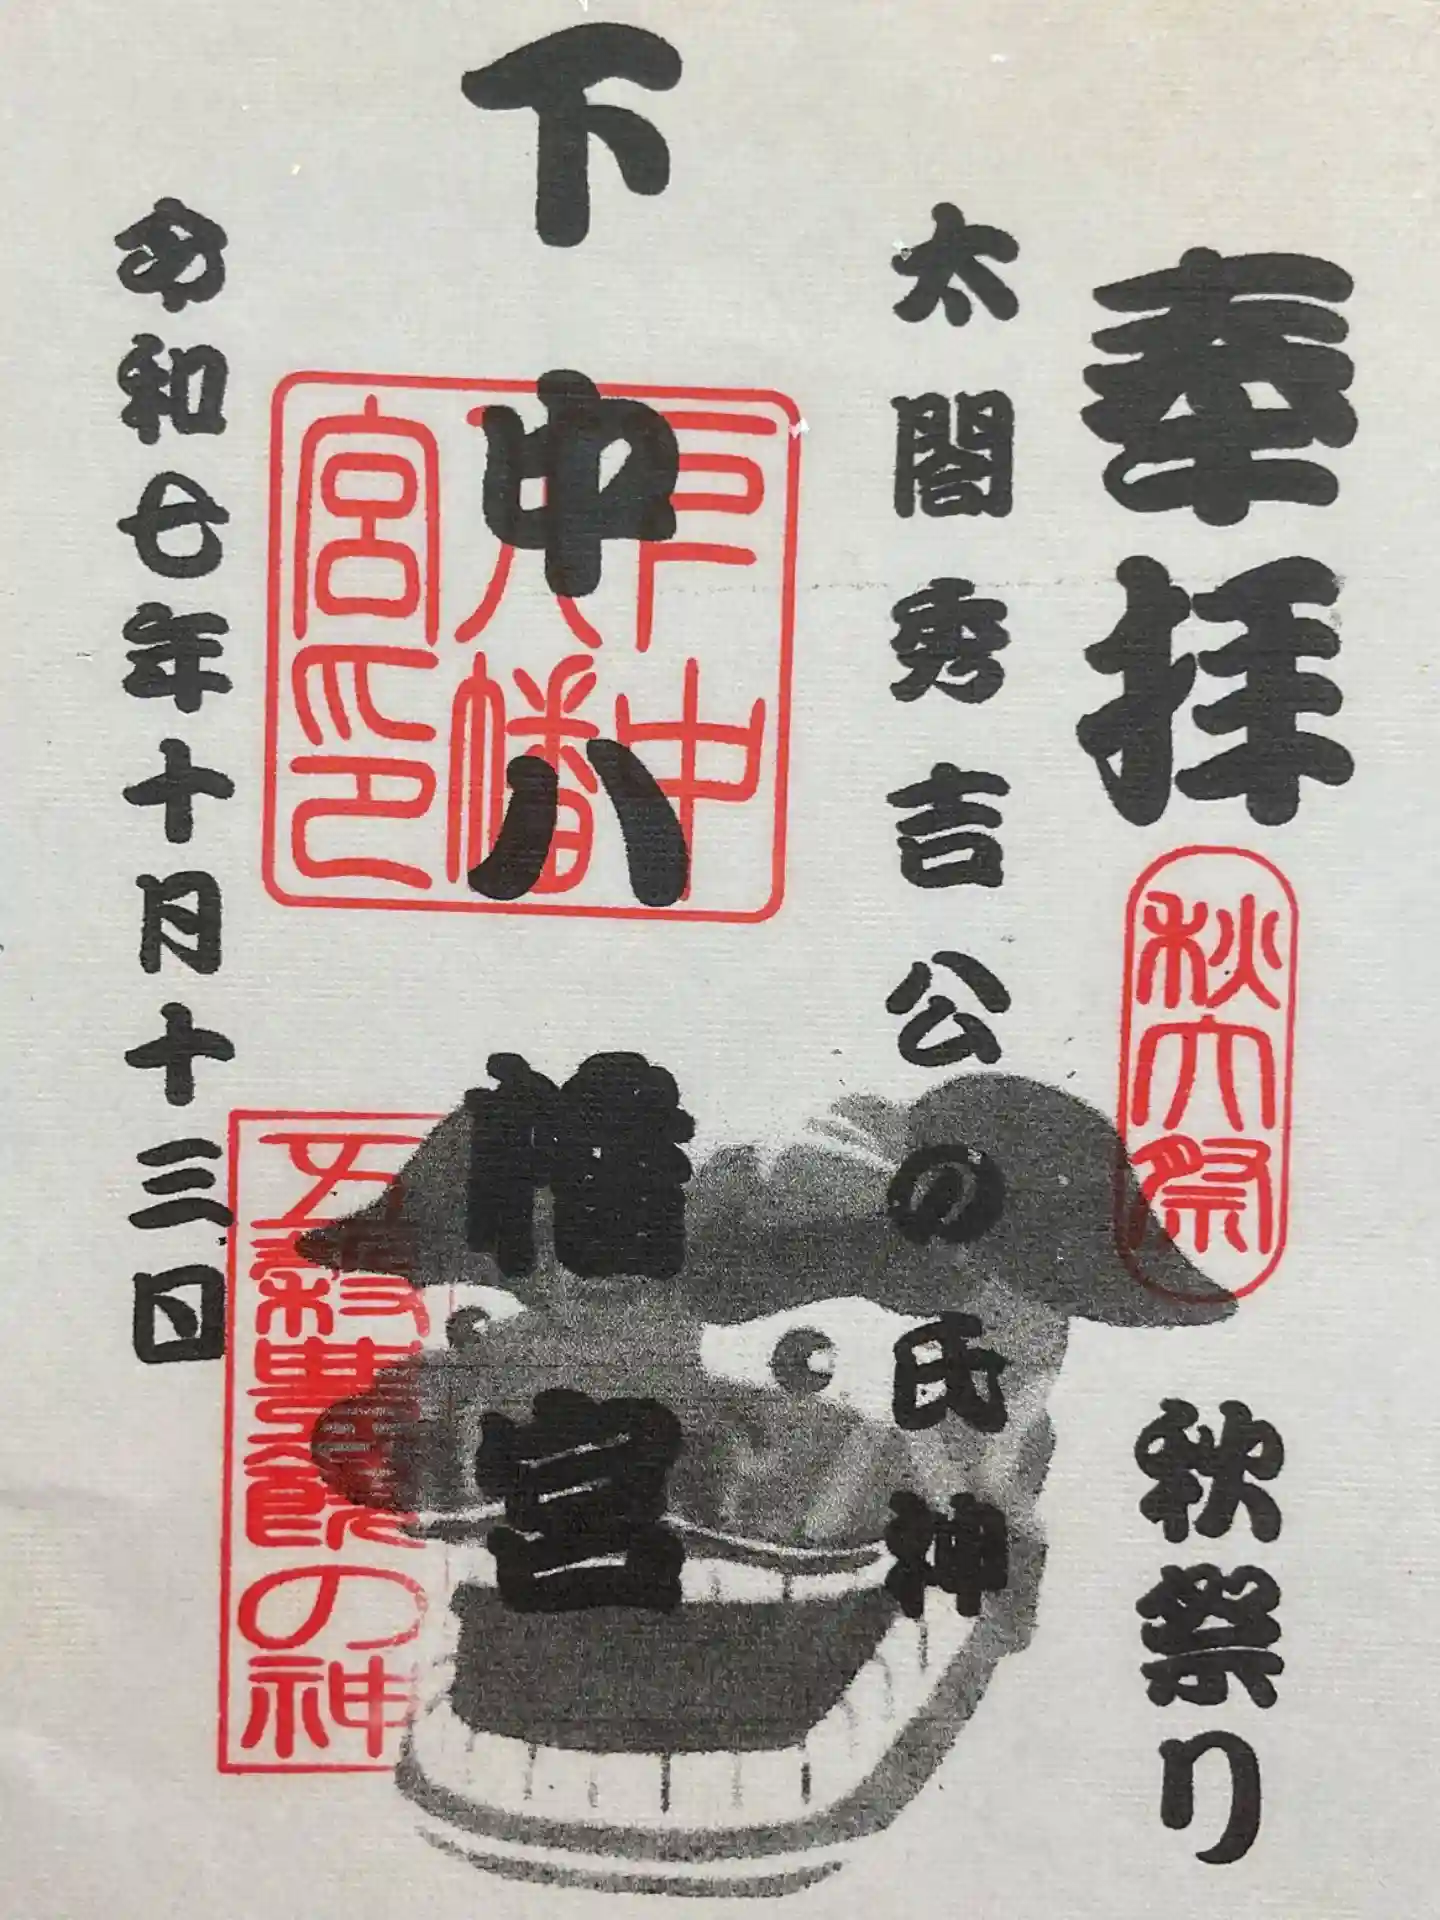 奉拝
秋大祭
秋祭り
太閤秀吉公の氏神
下中八幡宮
下中八幡宮印
令和七年十月十三日
五穀豊穣の神